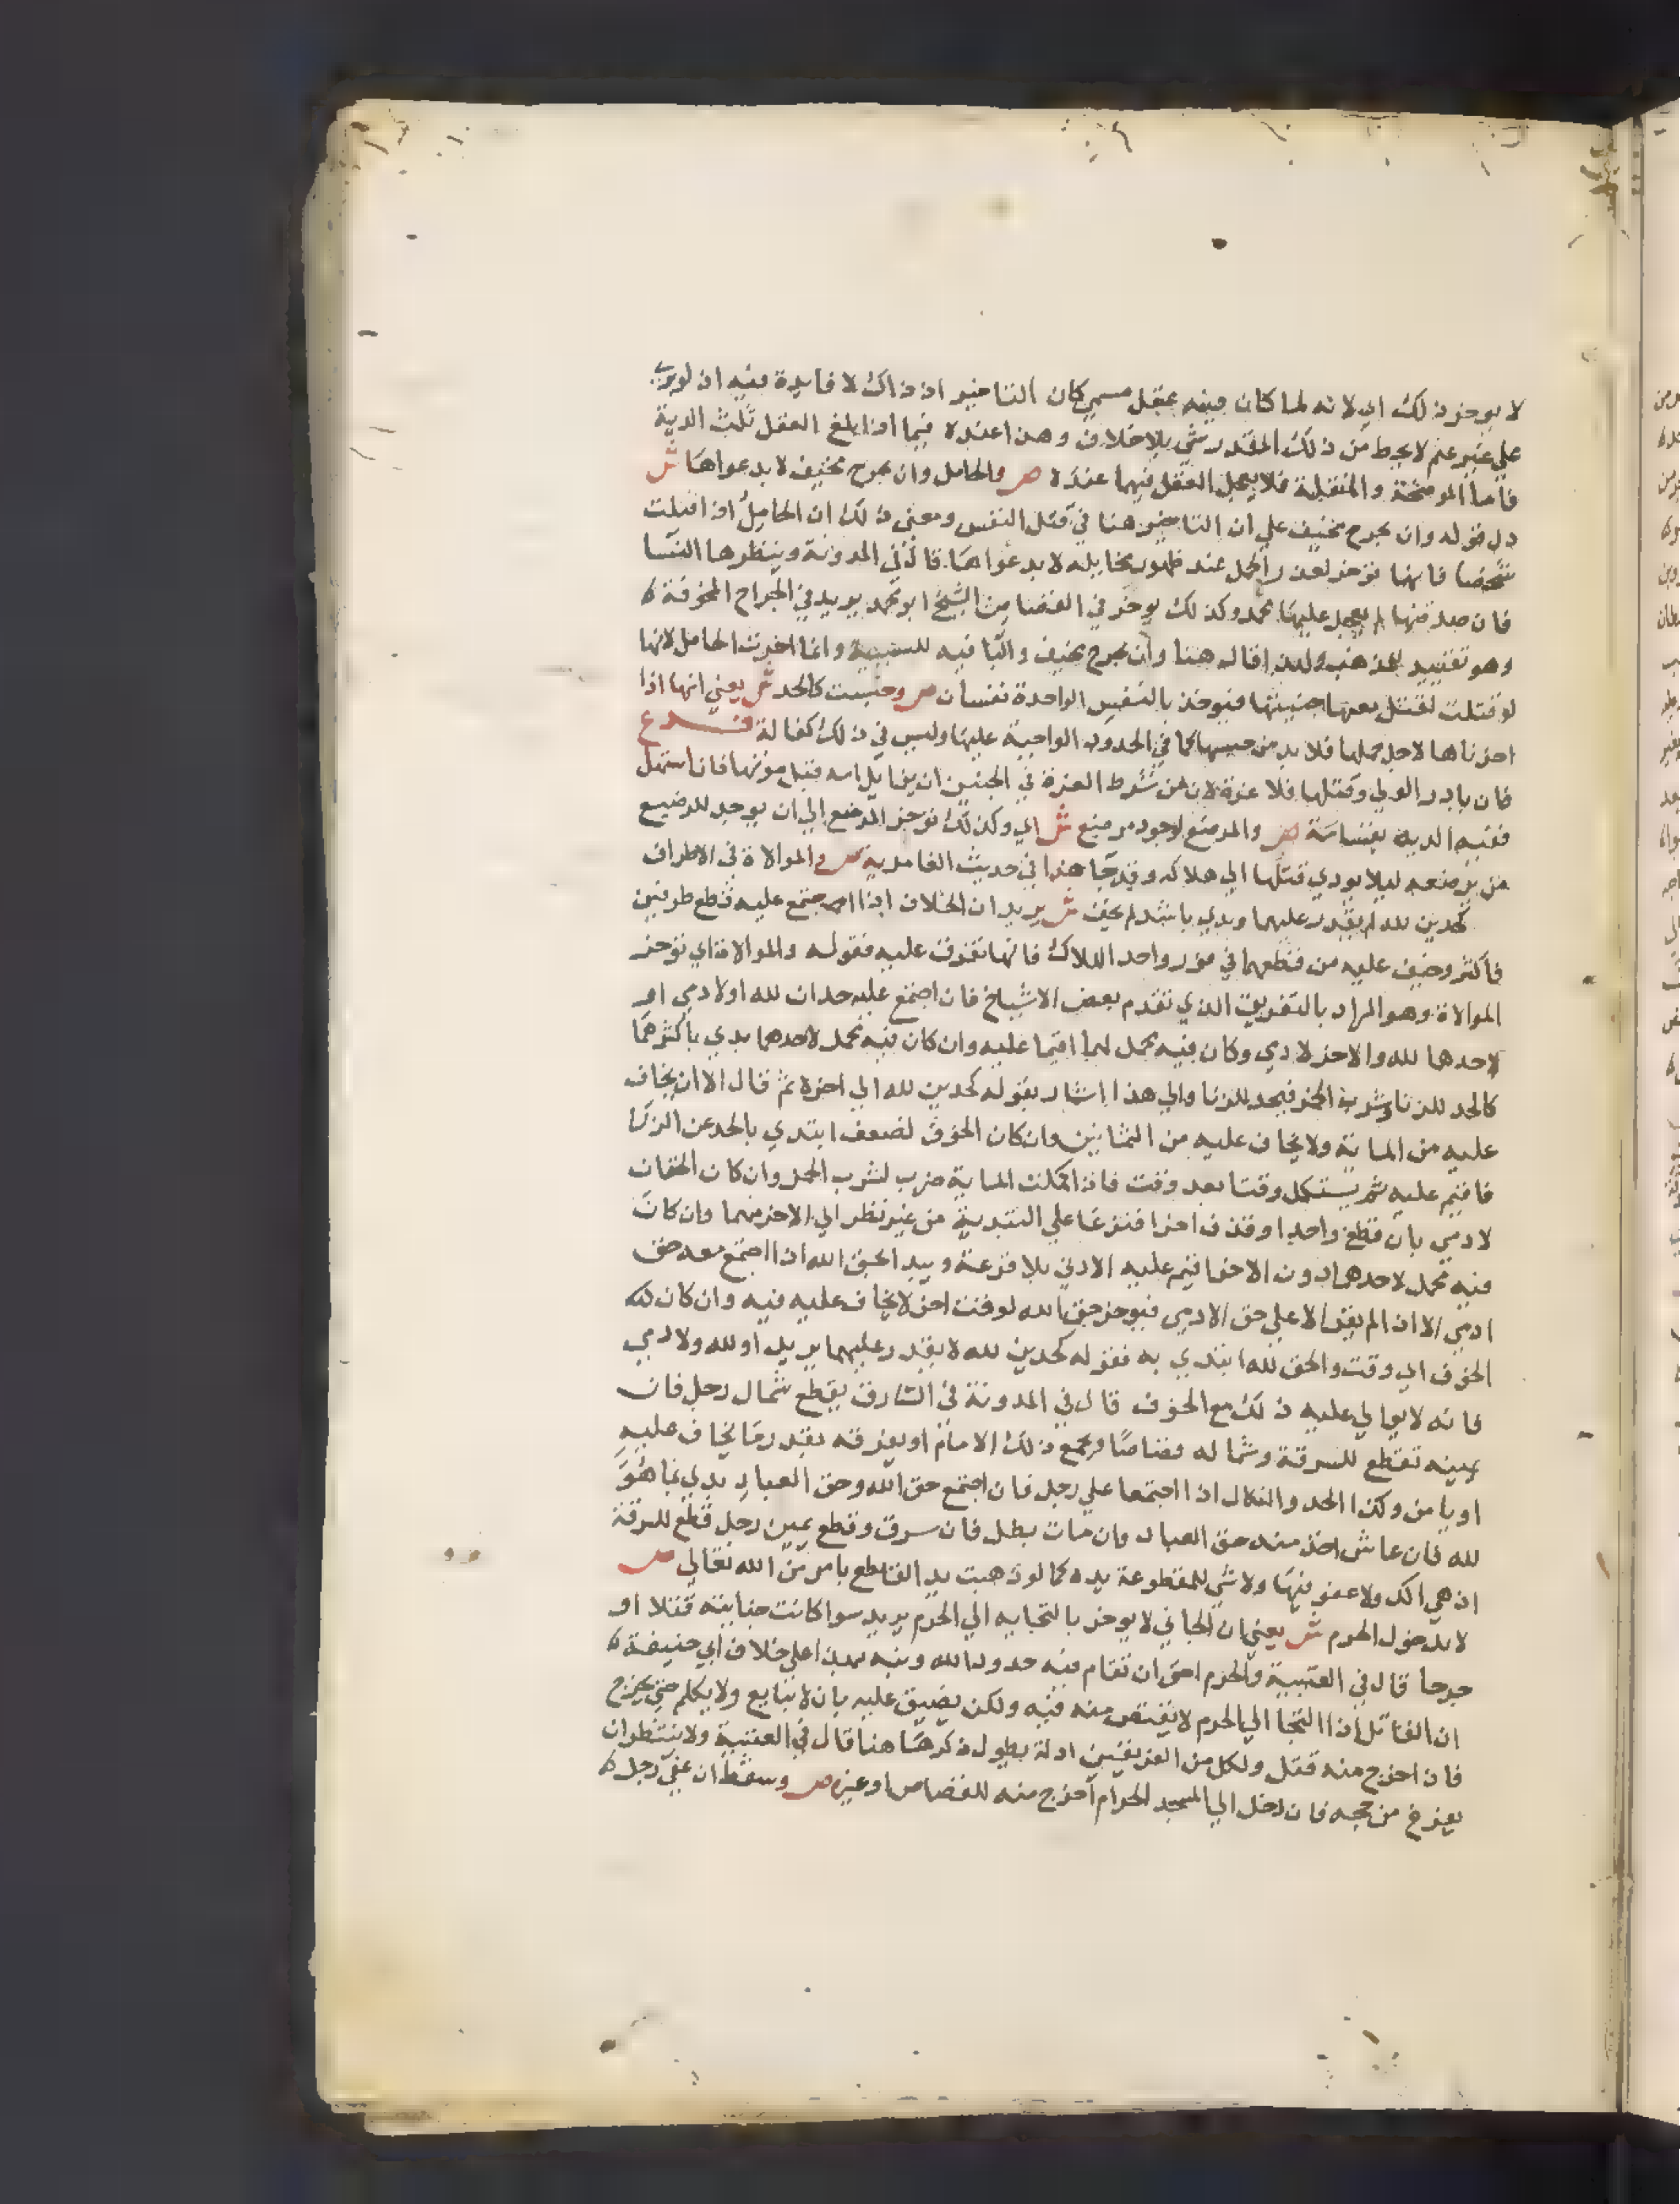 لا يوخر ذلك اي لانه لما كان فيه عقل مسمي كان التاخير اذ ذاك لا فايدة فيه اذ لو بري
علي غير عثم لا يحط من ذلك المقدر شي بلا خلاف وهذا عنده فيما اذا بلغ العقل ثلث الدية
فاما الموضحة والمنقلة فلا يعجل العقل فيهما عنده ص والحامل وان بجرح مخيف لا بدعواها ش
دل قوله وان بجرح مخيف علي ان التاخير هنا في قتل النفس ومعني ذلك ان الحامل اذا قتلت
شخصا فانها توخر لعذر الحمل عند ظهور مخايله لا بدعواها قال في المدونة وينظرها النسا
فان صدقنها لم يعجل عليها محمد وكذلك يوخر في القصاص الشيخ ابو محمد يريد في الجراح المخوفة
وهو تقييد للمذهب ولهذا قال هنا وان بجرح مخيف والبا فيه للسببية وانما اخرت الحامل لانها
لو قتلت لقتل معها جنينها فيوخذ بالنفس الواحدة نفسان ص وحبست كالحد ش يعني انها اذا
اخرناها لاجل حملها فلا بد من حبسها كما في الحدود الواجبة عليها وليس في ذلك كفالة فرع
فان بادر الولي وقتلها فلا غرة لان من شرط الغرة في الجنين ان يزايل امه قبل موتها فان استهل
ففيه الدية بقسامة ص والمرضع لوجود مرضع ش اي وكذلك توخر المرضع الي ان يوجد للرضيع
من يرضعه ليلا يودي قتلها الي هلاكه وقد جا هذا في حديث الغامدية ص والموالاة في الاطراف
كحدين لله لم يقدر عليهما وبدي باشد لم يخف ش يريد ان الخلاف اذا اجتمع عليه قطع طرفين
فاكثر وخيف عليه من قطعهما في فور واحد الهلاك فانها تفرق عليه فقوله والموالاة اي توخر
الموالاة وهو المراد بالتفريق الذي تقدم بعض الاشياخ فان اجتمع عليه حدان لله او لادمي او
لاحدها لله والاخر لادمي وكان فيه محمل لهما اقيما عليه وان كان فيه محمل لاحدهما بدي باكثرهما
كالحد للزنا وشرب الخمر فيحد للزنا والي هذا اشار بقوله كحدين لله الي اخره ثم قال الا ان يخاف
عليه من الماية ولا يخاف عليه من الثمانين وان كان الخوف لضعف ابتدي بالحد عن الزنا
فاقيم عليه ثم يستكمل وقتا بعد وقت فاذا كملت الماية ضرب لشرب الخمر وان كان الحقان
لادمي بان قطع واحدا وقذف اخرا اقترعا علي التبدية من غير نظر الي الاخر منهما وان كان
فيه محمل لاحدهما دون الاخر اقيم عليه الادني بلا قرعة ويبدا بحق الله اذا اجتمع معه حق
ادمي الا ان لم يقدر الا علي حق الادمي فيوخر حق الله لوقت اخر لا يخاف عليه فيه وان كان لله
الخوف الي وقت والحق لله ابتدي به فقوله كحدين لله لا يقدر عليهما يريد او لله ولادمي
فانه لا يوالي عليه ذلك مع الخوف قال في المدونة في السارق يقطع شمال رجل فان
يمينه تقطع للسرقة وشماله قصاصا ويجمع ذلك الامام او يفرقه بقدر ما يخاف عليه
او يامن وكذا الحد والنكال اذا اجتمعا علي رجل فان اجتمع حق الله وحق العباد بدي بما هو
لله فان عاش اخذ منه حق العباد وان مات بطل فان سرق وقطع يمين رجل قطع للسرقة
اذ هي اكد ولا عفو فيها ولا شي للمقطوعة يده كما لو ذهبت يد القاطع بامر من الله تعالي ص
لا بدخول الحرم ش يعني ان الجاني لا يوخر بالتجايه الي الحرم يريد سوا كانت جنايته قتلا او
جرحا قال في العتبية والحرم احق ان تقام فيه حدود الله ونبه بهذا علي خلاف ابي حنيفة
ان القاتل اذا التجا الي الحرم لا يقتص منه فيه ولكن يضيق عليه بان لا يبايع ولا يكلم حتي يخرج
فاذا خرج منه قتل ولكل من الفريقين ادلة يطول ذكرها هنا قال في العتبية ولا ينتظر ان
يفرغ من حجه فان دخل الي المسجد الحرام اخرج منه للقصاص او غيره ص وسقط ان عفي رجل